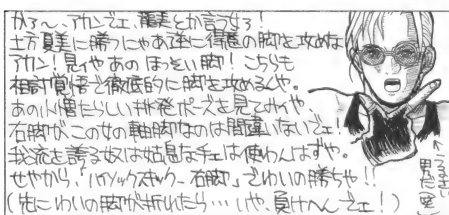 かぁ〜、アカンでェ、龍美とか言う女ろ!
土方夏美に勝つにゃあ逆に得意の脚を攻めな
アカン!見いやあのほっそい脚!こちらも
相討覚悟で徹底的に脚を攻めるんや。
あの小憎たらしい挑発ポーズを見てみいや、
右脚が、この女の軸脚なのは間違いないでェ!
我流を誇る奴は姑息なチェは使わんはずや。
せやから、「ハイソックスキック-右脚」でわいの勝ちや!!
(先にわいの脚が折れたら…いや、負けへんでェ!)
←うるさい
男だ(笑)